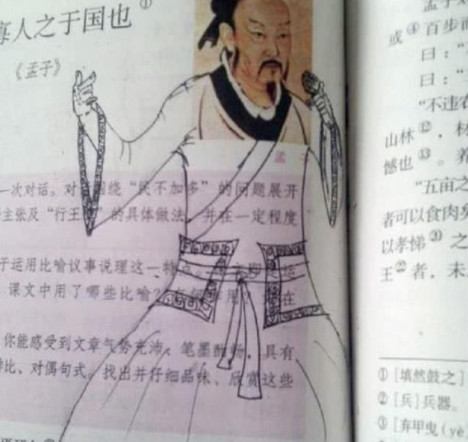 寡人之于国也①
《孟子》
孟
一次对话。对
绕“民不加多”的问题展开
主张及“行王
”的具体做法，并在一定程度
子运用比喻议事说理这一特点。
课文中用了哪些比喻？
在
你能感受到文章气势充沛、笔墨酣畅，具有
比、对偶句式。找出并仔细品味、欣赏这些
或④百步而
曰：“
曰：“
“不违
山林⑫，材
憾也⑬。养
“五亩之
者可以食肉
以孝悌⑳之
王㉒者，未
①[填然鼓之]
②[兵]兵器。
③[弃甲曳（yè